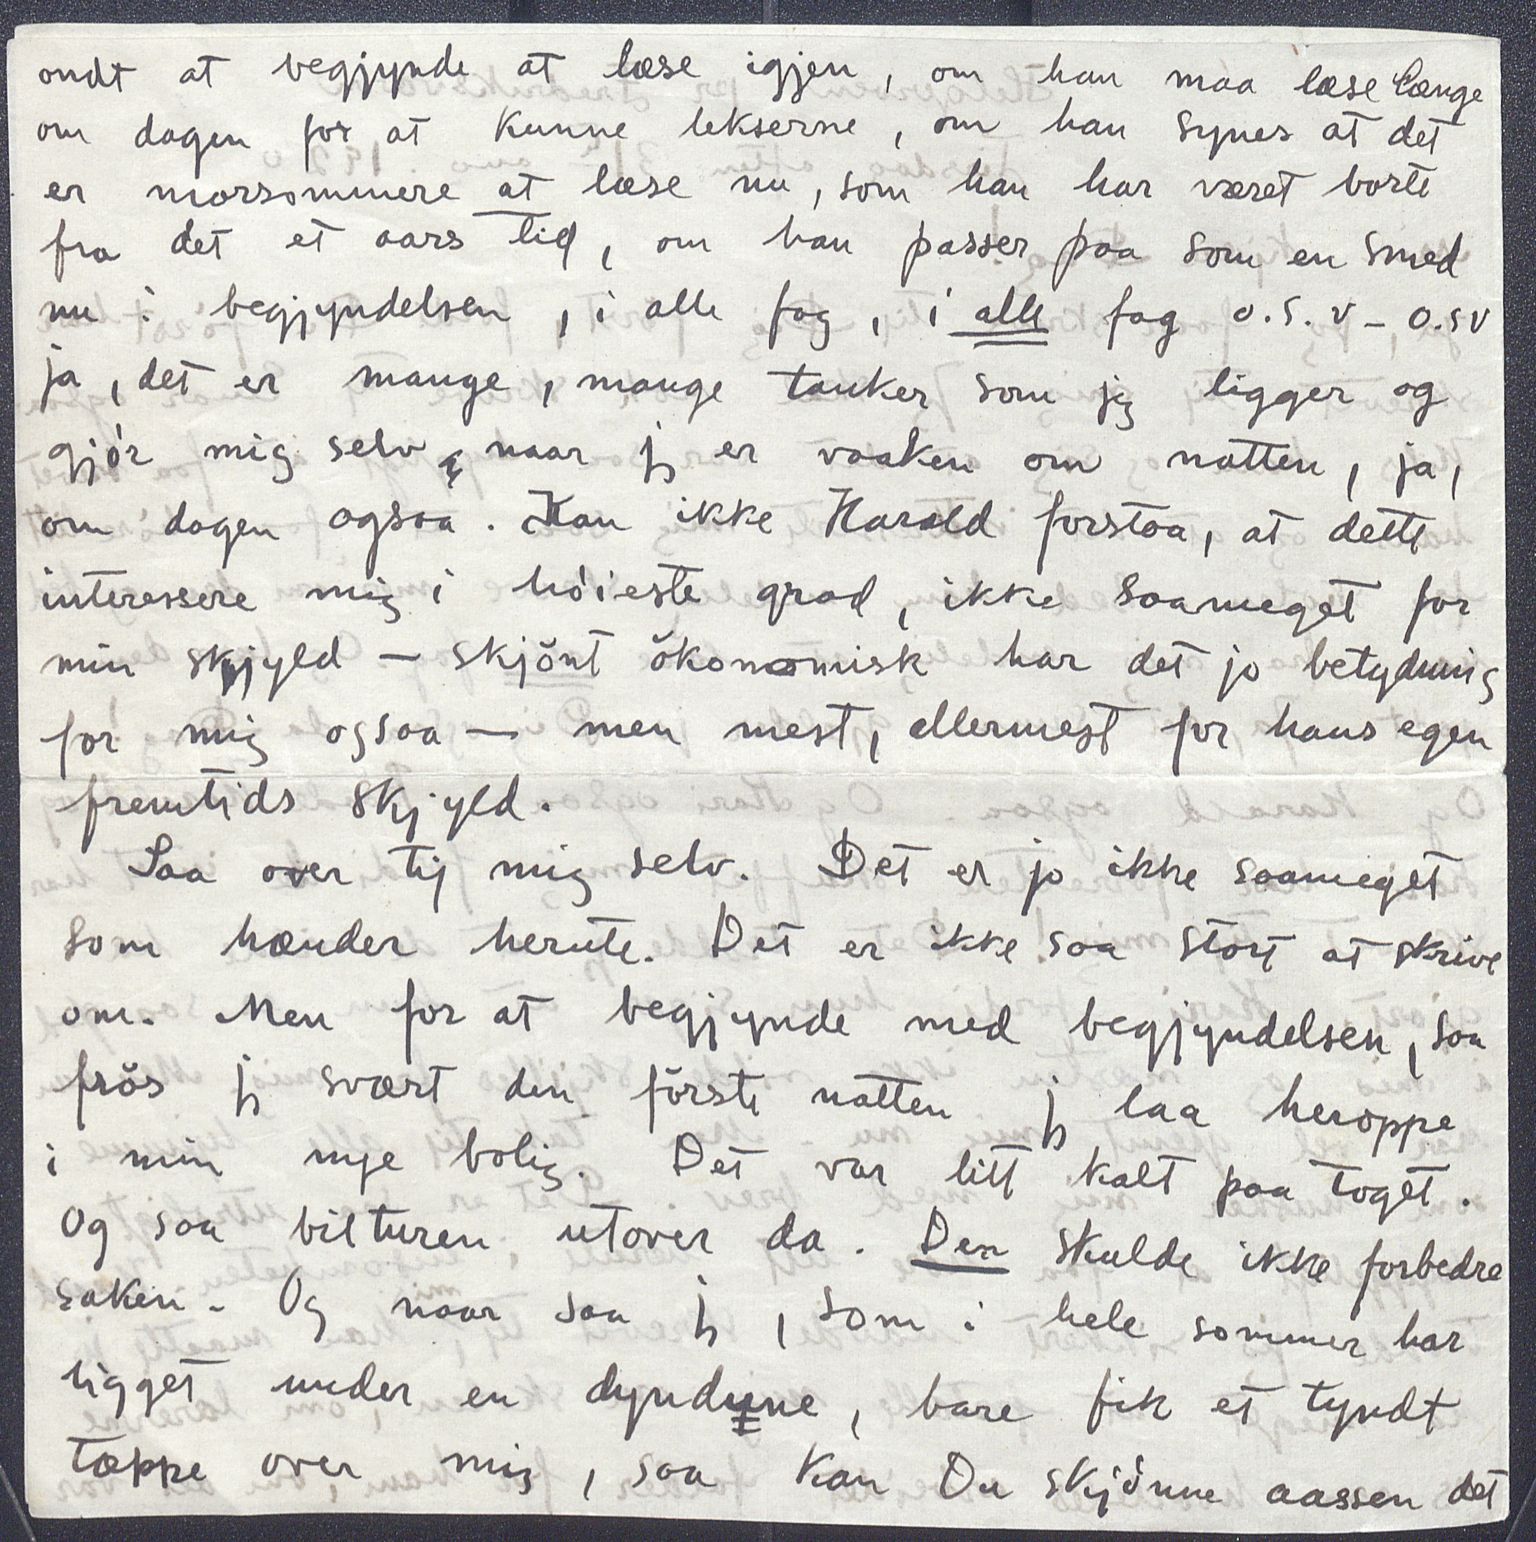 ondt at begjynde at læse igjen, om han maa læse længe
om dagen for at kunne lekserne, om han synes at det
er morsommere at læse nu, som han har været borte
fra det et aars tid, om han passer paa som en smed
nu i begjyndelsen, i alle fag, i alle fag o.s.v – o.sv
ja, det er mange, mange tanker som jeg ligger og
gjör mig selv, naar jeg er vaaken om natten, ja,
om dagen ogsaa. Kan ikke Harald forstaa, at dette
interessere mig i höieste grad, ikke saameget for
min skjyld – skjönt ökonomisk har det jo betydning
for mig ogsaa – men mest, allermest for hans egen
fremtids skjyld.
Saa over til mig selv. Det er jo ikke saameget
som hænder herute. Det er ikke saa stort at skrive
om. Men for at begjynde med begjyndelsen, saa
frös jeg svært den förste natten jeg laa heroppe
i min nye bolig. Det var litt kalt paa toget.
Og saa bilturen utover da. Den skulde ikke forbedre
saken. Og naar saa jeg, som i hele sommer har
ligget under en dyndyne, bare fik et tyndt
tæppe over mig, saa kan Du skjönne aassen det